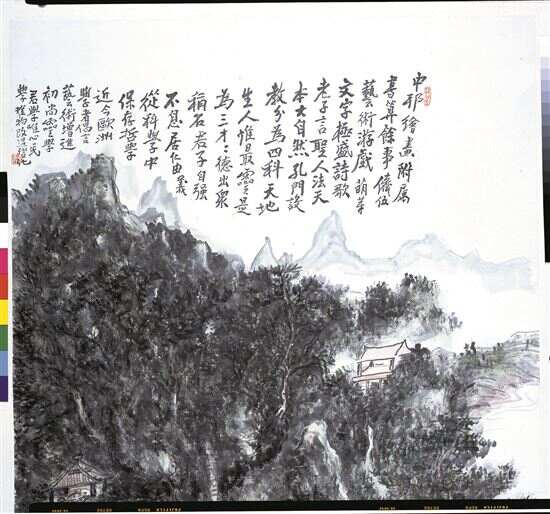 中邦繪畫附屬
書算餘事儕伍
藝術游戲萌芽
文字極盛詩歌
老子言聖人法天
本大自然孔門設
教分為四科天地
生人惟最靈是
為三才德出衆
稱君子自强
不息居仁由義
從科學中
保存哲學
近今歐洲
學者倡言
藝術增進
初尚靈學
君學唯心民
學唯物